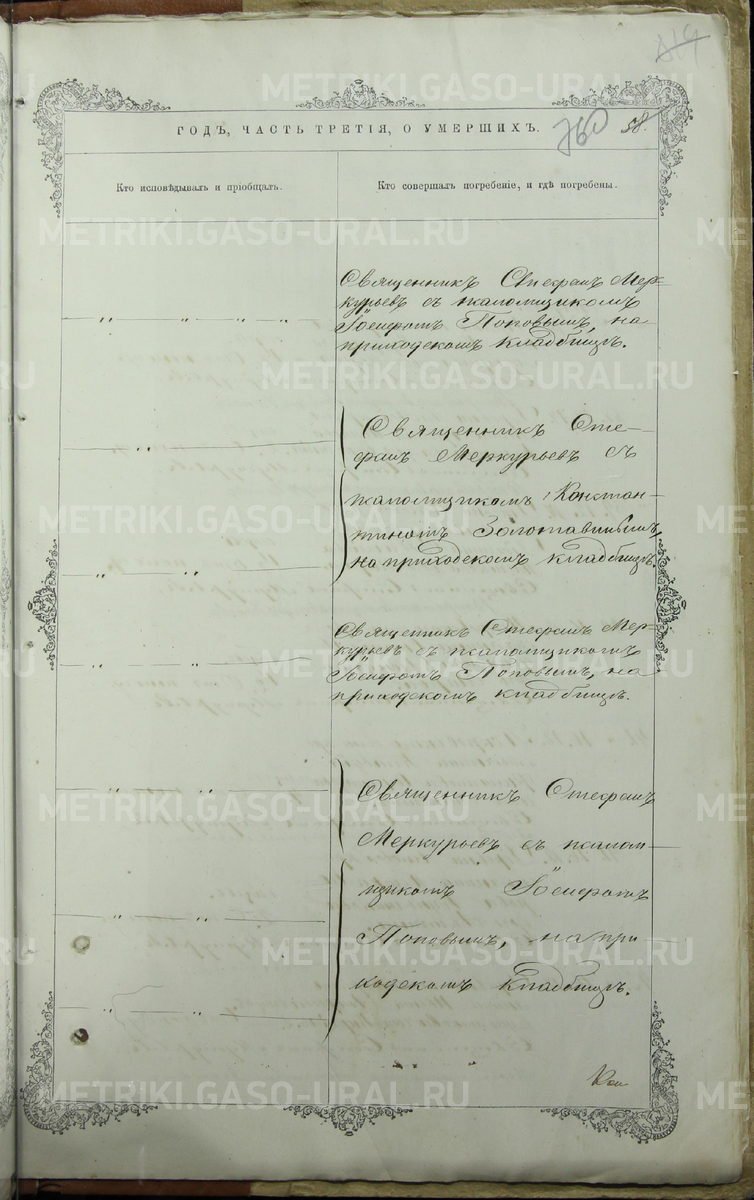 ГОДЪ, ЧАСТЬ ТРЕТІЯ, О УМЕРШИХЪ.
760
58.
Кто исповѣдывалъ и пріобщалъ.
Кто совершалъ погребеніе, и гдѣ погребены.
Священникъ Стефанъ Мер-
курьевъ съ псаломщикомъ
Іосифомъ Поповымъ, на
приходскомъ кладбищѣ.
Священникъ Сте-
фанъ Меркурьевъ съ
псаломщикомъ Констан-
тиномъ Золотавинымъ,
на приходскомъ кладбищѣ.
Священникъ Стефанъ Мер-
курьевъ съ псаломщикомъ
Іосифомъ Поповымъ, на
приходскомъ кладбищѣ.
Священникъ Стефанъ
Меркурьевъ съ псалом-
щикомъ Іосифомъ
Поповымъ, на при-
ходскомъ кладбищѣ.
METRIKI.GASO-URAL.RU